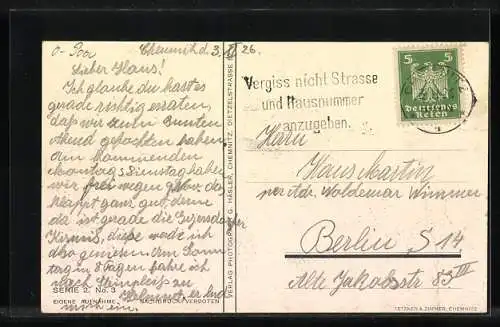 Chemnitz d. 3. 26.
Lieber Hans!
Ich glaube du hast es
gerade richtig erraten,
daß wir
gefochten haben
Am kommenden
Montag & Dienstag haben
wir frei wegen
klappt ganz gut, denn
da ist gerade die
Kirmis, diese werde ich
Am Sonn-
tag in 8 Tagen fahre ich
nach zu
er
mich ein.
SERIE 2. No. 3
EIGENE AUFNAHME NACHDRUCK VERBOTEN
VERLAG PHOTOGRAPH G. HÄSLER, CHEMNITZ, DIETZELSTRASSE
Vergiss nicht Strasse
und Hausnummer
anzugeben.
5 5
Deutsches
Reich
Herrn
Hans Martin
per Adr. Woldemar Wimmer
Berlin S 14
Alte Jakobstr 83 III
TETZNER & ZIMMER, CHEMNITZ